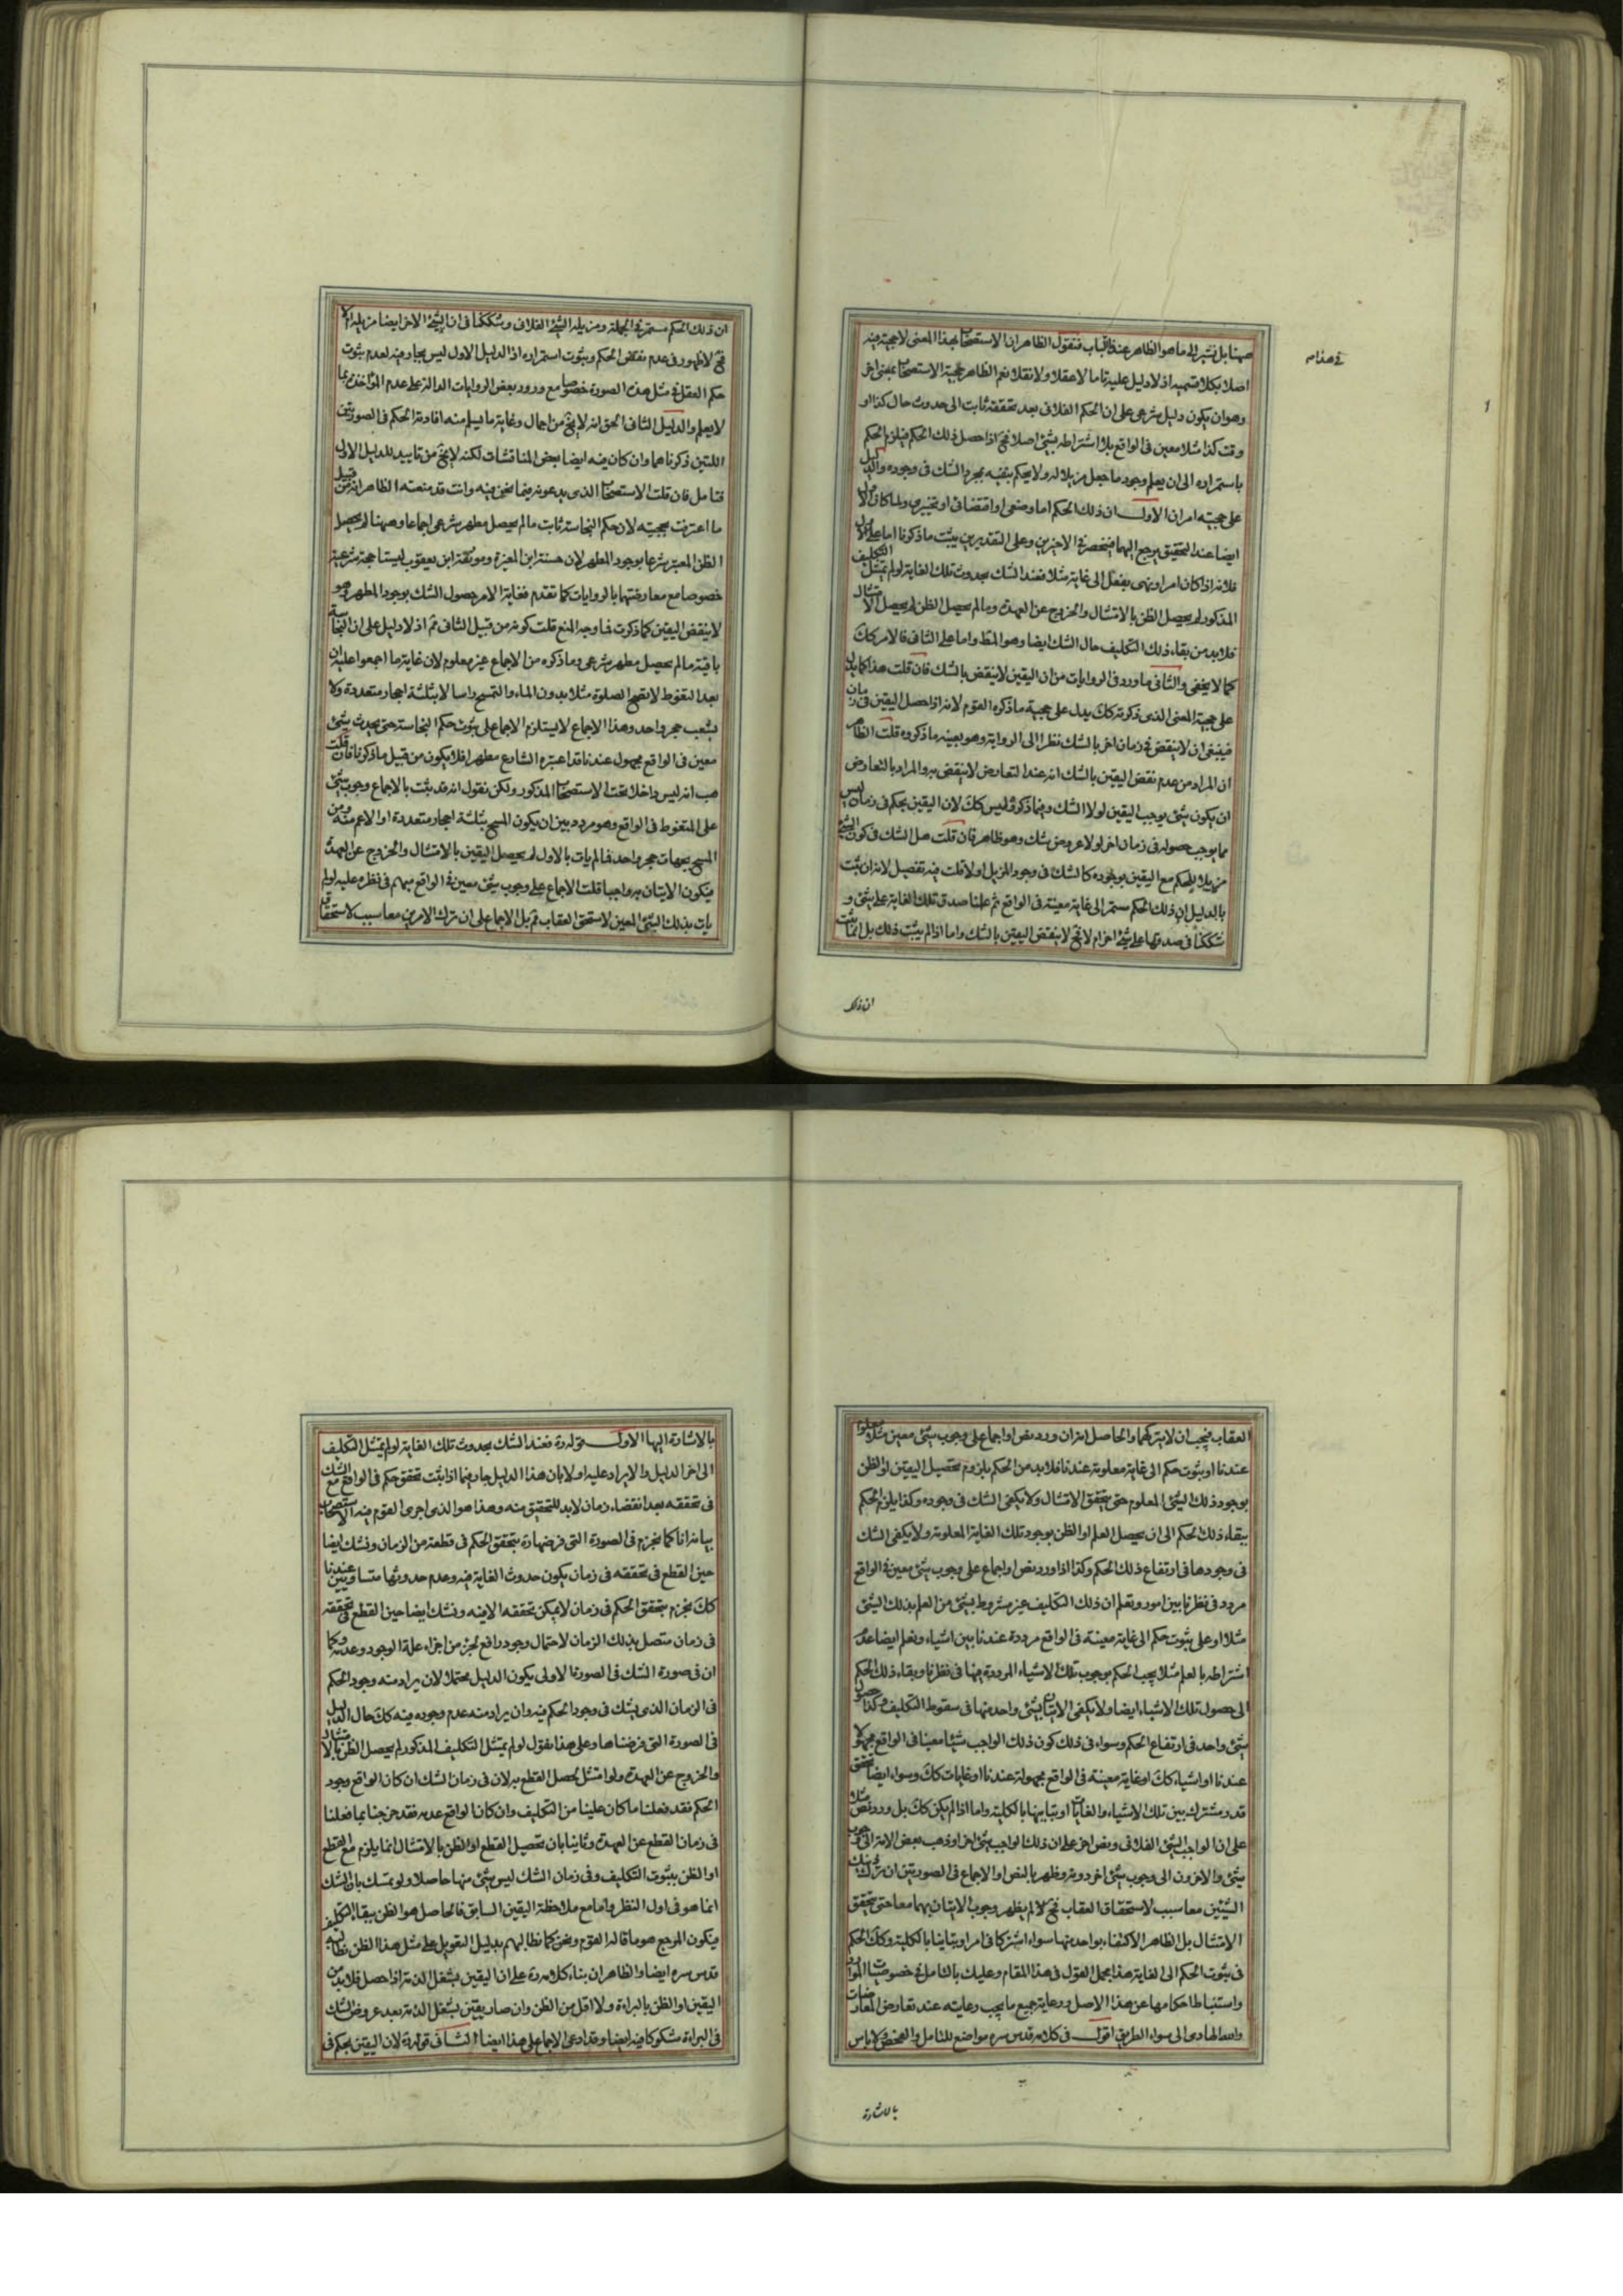 ههنا بل نشير الى ما هو الظاهر عندنا في الباب فنقول الظاهر ان الاستصحاب بهذا المعنى لا حجية فيه
في هذا م
اصلا بكلا قسميه اذ لا دليل عليه تاما لا عقلا ولا نقلا نعم الظاهر حجية الاستصحاب بمعنى اخر
وهو ان يكون دليل شرعى على ان الحكم الفلانى بعد تحققه ثابت الى حدوث حال كذا او
وقت كذا مثلا معين فى الواقع بلا اشتراطه بشئ اصلا فح اذا حصل ذلك الحكم فيلزم الحكم
باستمراره الى ان يعلم وجود ما جعل مزيلا له ولا يحكم بنفيه بمجرد الشك فى وجوده والدليل
على حجيته امران الاول ان ذلك الحكم اما وضعى او اقتضائى او تخييرى ولما كان الاول
ايضا عند التحقيق يرجع اليهما فينحصر فى الاخيرين وعلى التقديرين يثبت ما ذكرنا اما على الاول
فلانه اذا كان امر او نهى بفعل الى غاية مثلا فعند الشك بحدوث تلك الغاية لو لم يمتثل التكليف
المذكور لم يحصل الظن بالامتثال والخروج عن العهدة وما لم يحصل الظن لم يحصل الامتثال
فلا بد من بقاء ذلك التكليف حال الشك ايضا وهو المط واما على الثانى فالامر كك
كما لا يخفى والثانى ما ورد فى الروايات من ان اليقين لا ينقض بالشك فان قلت هذا كما يدل
على حجية المعنى الذى ذكرته كك يدل على حجية ما ذكره القوم لانه اذا حصل اليقين فى زمان
فينبغى ان لا ينقض فى زمان اخر بالشك نظرا الى الرواية وهو بعينه ما ذكروه قلت الظاهر
ان المراد من عدم نقض اليقين بالشك انه عند التعارض لا ينقض به والمراد بالتعارض
ان يكون شئ يوجب اليقين لولا الشك وفيما ذكروه ليس كك لان اليقين بحكم فى زمان ليس
مما يوجب حصوله فى زمان اخر لولا عروض شك وهو ظاهر فان قلت هل الشك فى كون الشئ
مزيلا للحكم مع اليقين بوجوده كالشك فى وجود المزيل او لا قلت فيه تفصيل لانه ان ثبت
بالدليل ان ذلك الحكم مستمر الى غاية معينة فى الواقع ثم علمنا صدق تلك الغاية على شئ و
شككنا فى صدقها على شئ اخر ام لا فح لا ينقض اليقين بالشك واما اذا لم يثبت ذلك بل انما ثبت
ان ذلك
ان ذلك الحكم مستمر فى الجملة ومزيله الشئ الفلانى وشككنا فى ان الشئ الاخر ايضا مزيله ام لا
فح لا ظهور فى عدم نقض الحكم وثبوت استمراره اذ الدليل الاول ليس بجار فيه لعدم ثبوت
حكم العقل فى مثل هذه الصورة خصوصا مع ورود بعض الروايات الدالة على عدم المؤاخذة بما
لا يعلم والدليل الثانى الحق انه لا يخ من اجمال وغاية ما يسلم منه افادة الحكم فى الصورتين
اللتين ذكرناهما وان كان فيه ايضا بعض المناقشات لكنه لا يخ من تاييد للدليل الاول
فتامل فان قلت الاستصحاب الذى يدعونه فيما نحن فيه وانت قد منعته الظاهر انه من قبيل
ما اعترفت بحجيته لان حكم النجاسة ثابت ما لم يحصل مطهر شرعى اجماعا وههنا لم يحصل
الظن المعتبر شرعا بوجود المطهر لان حسنة ابن المغيرة وموثقة ابن يعقوب ليستا حجة شرعية
خصوصا مع معارضتهما بالروايات كما تقدم فغاية الامر حصول الشك بوجود المطهر وهو
لا ينقض اليقين كما ذكرت فما وجه المنع قلت كونه من قبيل الثانى ثم اذ لا دليل على ان النجاسة
باقية ما لم يحصل مطهر شرعى وما ذكره من الاجماع غير معلوم لان غاية ما اجمعوا عليه ان
بعد التغوط لا يصح الصلوة مثلا بدون الماء والتمسح راسا لا بثلثة احجار متعددة ولا
بشعب حجر واحد وهذا الاجماع لا يستلزم الاجماع على ثبوت حكم النجاسة حتى يحدث شئ
معين فى الواقع مجهول عندنا قد اعتبره الشارع مطهرا فلا يكون من قبيل ما ذكرنا فان قلت
هب انه ليس داخلا تحت الاستصحاب المذكور ولكن نقول انه قد ثبت بالاجماع وجوب شئ
على المتغوط فى الواقع وهو مردد بين ان يكون المسح بثلثة احجار متعددة او الاعم منه ومن
المسح بجهات حجر واحد فما لم يات بالاول لم يحصل اليقين بالامتثال والخروج عن العهدة
فيكون الاتيان به واجبا قلت الاجماع على وجوب شئ معين فى الواقع مبهم فى نظره عليه لو لم
يات بذلك الشئ المعين لاستحق العقاب ثم بل الاجماع على ان ترك الامرين معا سبب لاستحقاق
العقاب فيجب ان لا يتركهما والحاصل انه ان ورد نص او اجماع على وجوب شئ معين مثلا معلوم
عندنا او ثبوت حكم الى غاية معلومة عندنا فلا بد من الحكم بلزوم تحصيل اليقين او الظن
بوجود ذلك الشئ المعلوم حتى يتحقق الامتثال ولا يكفى الشك فى وجوده وكذا يلزم الحكم
ببقاء ذلك الحكم الى ان يحصل العلم او الظن بوجود تلك الغاية المعلومة ولا يكفى الشك
فى وجودها فى ارتفاع ذلك الحكم وكذا اذا ورد نص او اجماع على وجوب شئ معين فى الواقع
مردد فى نظرنا بين امور ونعلم ان ذلك التكليف غير مشروط بشئ من العلم بذلك الشئ
مثلا او على ثبوت حكم الى غاية معينة فى الواقع مرددة عندنا بين اشياء ونعلم ايضا عدم
اشتراطه بالعلم مثلا يجب الحكم بوجوب تلك الاشياء المرددة فيها فى نظرنا وبقاء ذلك الحكم
الى حصول تلك الاشياء ايضا ولا يكفى الاتيان بشئ واحد منها فى سقوط التكليف وكذا حصول
شئ واحد فى ارتفاع الحكم وسواء فى ذلك كون ذلك الواجب شيئا معينا فى الواقع مجهولا
عندنا او اشياء كك او غاية معينة فى الواقع مجهولة عندنا او غايات كك وسواء ايضا تحقق
قدر مشترك بين تلك الاشياء والغايات او تباينها بالكلية واما اذا لم يكن كك بل ورد نص مثلا
على ان الواجب الشئ الفلانى ونص اخر على ان ذلك الواجب شئ اخر او ذهب بعض الامة الى وجوب
شئ والاخرون الى وجوب شئ اخر دونه وظهر بالنص او الاجماع فى الصورتين ان ترك ذينك
الشيئين معا سبب لاستحقاق العقاب فح لا لم يظهر وجوب الاتيان بهما معا حتى يتحقق
الامتثال بل الظاهر الاكتفاء بواحد منهما سواء اشتركا فى امر او تباينا بالكلية وكك الحكم
فى ثبوت الحكم الى الغاية هذا مجمل القول فى هذا المقام وعليك بالتامل فى خصوصيات الموارد
واستنباط احكامها عن هذا الاصل ورعاية جميع ما يجب رعايته عند تعارض المعارضات
والله الهادى الى سواء الطريق اقول فى كلامه قدس سره مواضع للتامل والفحص ولا باس
بالاشارة
بالاشارة اليها الاول قوله ره فعند الشك بحدوث تلك الغاية لو لم يمتثل التكليف
الى اخر الدليل والايراد عليه اولا بان هذا الدليل جار فيما اذا ثبت تحقق حكم فى الواقع مع الشك
فى تحققه بعد انقضاء زمان لا بد للتحقيق منه وهذا هو الذى اجرى القوم فيه الاستصحاب
بيانه انا كما نجزم فى الصورة التى فرضها ره بتحقق الحكم فى قطعة من الزمان ونشك ايضا
حين القطع فى تحققه فى زمان يكون حدوث الغاية فيه وعدم حدوثها متساويين عندنا
كك نجزم بتحقق الحكم فى زمان لا يمكن تحققه الا فيه ونشك ايضا حين القطع فى تحققه
فى زمان متصل بذلك الزمان لاحتمال وجود رافع لجزء من اجزاء علة الوجود وعدمه وكما
ان فى صورة الشك فى الصورة الاولى يكون الدليل محتملا لان يراد منه وجود الحكم
فى الزمان الذى يشك فى وجود الحكم فيه وان يراد منه عدم وجوده فيه كك حال الدليل
فى الصورة التى فرضناها وعلى هذا نقول لو لم يمتثل التكليف المذكور لم يحصل الظن بالامتثال
والخروج عن العهدة ولو امتثل لحصل القطع به لان فى زمان الشك ان كان الواقع وجود
الحكم فقد فعلنا ما كان علينا من التكليف وان كان الواقع عدمه فقد خرجنا بما فعلنا
فى زمان القطع عن العهدة وثانيا بان تحصيل القطع او الظن بالامتثال انما يلزم مع القطع
او الظن بثبوت التكليف وفى زمان الشك ليس شئ منها حاصلا ولو تمسك بان الشك
انما هو فى اول النظر واما مع ملاحظة اليقين السابق فالحاصل هو الظن ببقاء التكليف
فيكون المرجع هو ما قاله القوم ونحن كما نطالبهم بدليل التعويل على مثل هذا الظن نطالبه
قدس سره ايضا والظاهر ان بناء كلامه ره على ان اليقين بشغل الذمة اذا حصل فلا بد من
اليقين او الظن بالبراءة ولا اقل من الظن وان صار يقين بشغل الذمة بعد عروض الشك
فى البراءة مشكوكا فيه ايضا وقد ادعى الاجماع على هذا ايضا الثانى قوله ره لان اليقين بحكم فى